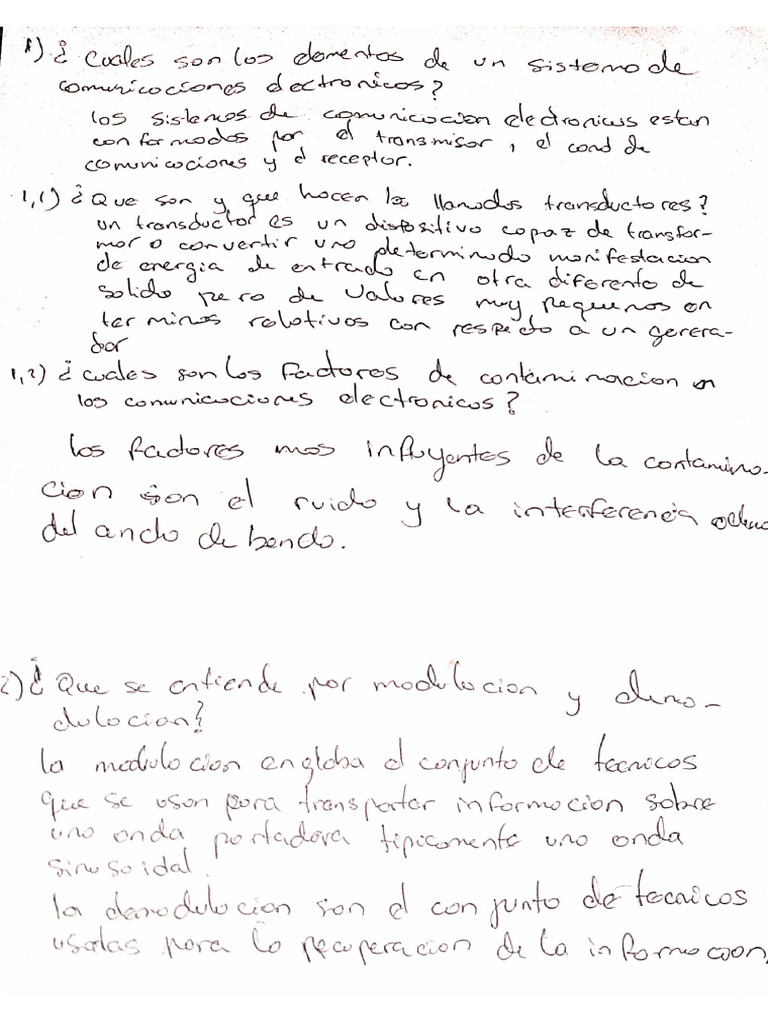 1) ¿ Cuales son los elementos de un sistema de
comunicaciones electronicos?
los sistemas de comunicacion electronicos estan
conformados por el transmisor, el canal de
comunicaciones y el receptor.
1,1) ¿Que son y que hacen los llamados transductores?
un transductor es un dispositivo capaz de transfor-
mar o convertir una determinado manifestacion
de energia de entrada en otra diferente de
salida pero de valores muy pequenos en
terminos relativos con respecto a un genera-
dor
1,2) ¿ cuales son los factores de contaminacion en
los comunicaciones electronicos?
los factores mas influyentes de la contamina-
cion son el ruido y la interferencia
del ancho de banda.
2) ¿ Que se entiende por modulacion y demo-
dulacion?
la modulacion engloba el conjunto de tecnicas
que se usan para transportar informacion sobre
una onda portadora tipicamente una onda
sinusoidal.
la demodulacion son el conjunto de tecnicas
usadas para la recuperacion de la informacion.